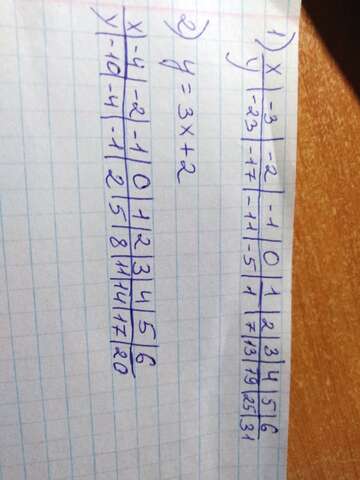 1) x | -3 | -2 | -1 | 0 | 1 | 2 | 3 | 4 | 5 | 6
y | -23 | -17 | -11 | -5 | 1 | 7 | 13 | 19 | 25 | 31
2) y = 3x+2
x | -4 | -2 | -1 | 0 | 1 | 2 | 3 | 4 | 5 | 6
y | -10 | -4 | -1 | 2 | 5 | 8 | 11 | 14 | 17 | 20